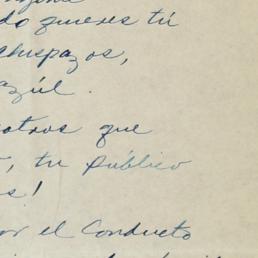 do quieres tú
chispazos,
azúl.
otros que
, tu público
s!
or el Conducto